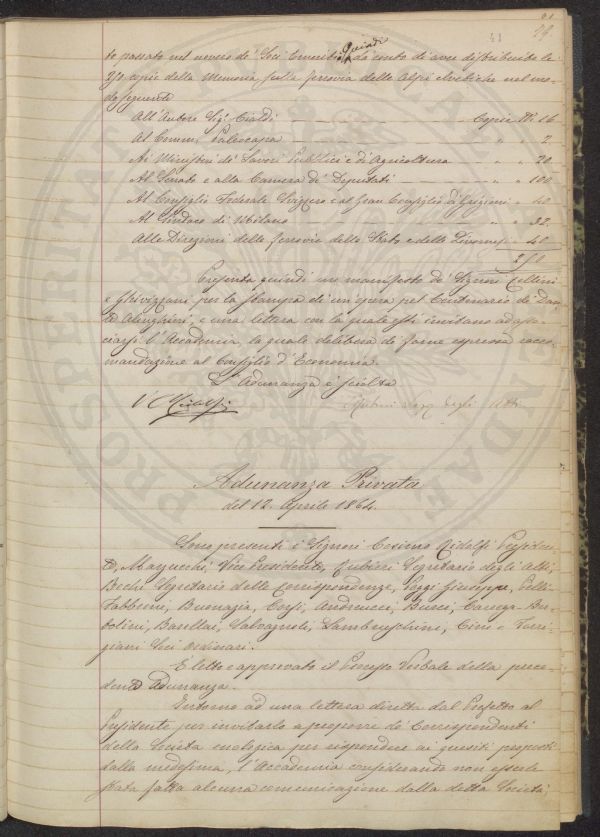 41
29
41
to passato nel novero de' Soci Emeriti. Quindi dà conto di aver distribuito le
250 copie della Memoria sulla ferrovia delle Alpi elvetiche nel mo-
do seguente
All'Autore Sigr. Cialdi — Copie N. 16
Al Comm. Paleocapa — " " 2
Ai Ministri de' Lavori Pubblici e di Agricoltura — " " 20
Al Senato e alla Camera de' Deputati — " " 100
Al Consiglio Federale Svizzero e al Gran Consiglio de' Grigioni " 40
Al Sindaco di Milano " " 32
Alle Direzioni delle ferrovie dello Stato e delle Livornesi " 40
250
Presenta quindi un manifesto de' Signori Cellini
e Ghivizzani per la stampa di un'opera pel Centenario di Dan-
te Alenghieri, e una lettera con la quale essi invitano ad asso-
ciarsi l'Accademia, la quale delibera di farne espressa racco-
mandazione al Consiglio d'Economia.
L'Adunanza è sciolta
V. C. Ridolfi
Segr. degli Atti
Adunanza Privata
del 12. Aprile 1864.
Sono presenti i Signori Cosimo Ridolfi Presiden-
te, Mazzucchi, Vice Presidente, Cubieri Segretario degli Atti,
Bechi Segretario delle Corrispondenze, Poggi Giuseppe, Pelli-
Fabbroni, Buonazia, Corsi, Andreucci, Busci, Carega, Bu-
Botini, Basellai, Salvagnoli, Lambruschini, Cini e Torri-
giani Soci ordinari.
È letto e approvato il Processo Verbale della prece-
dente Adunanza.
Intorno ad una lettera diretta dal Prefetto al
Presidente per invitarlo a proporre de' Corrispondenti
della Società enologica per rispondere ai quesiti proposti
dalla medesima, l'Accademia considerando non esserle
stata fatta alcuna comunicazione dalla detta Società